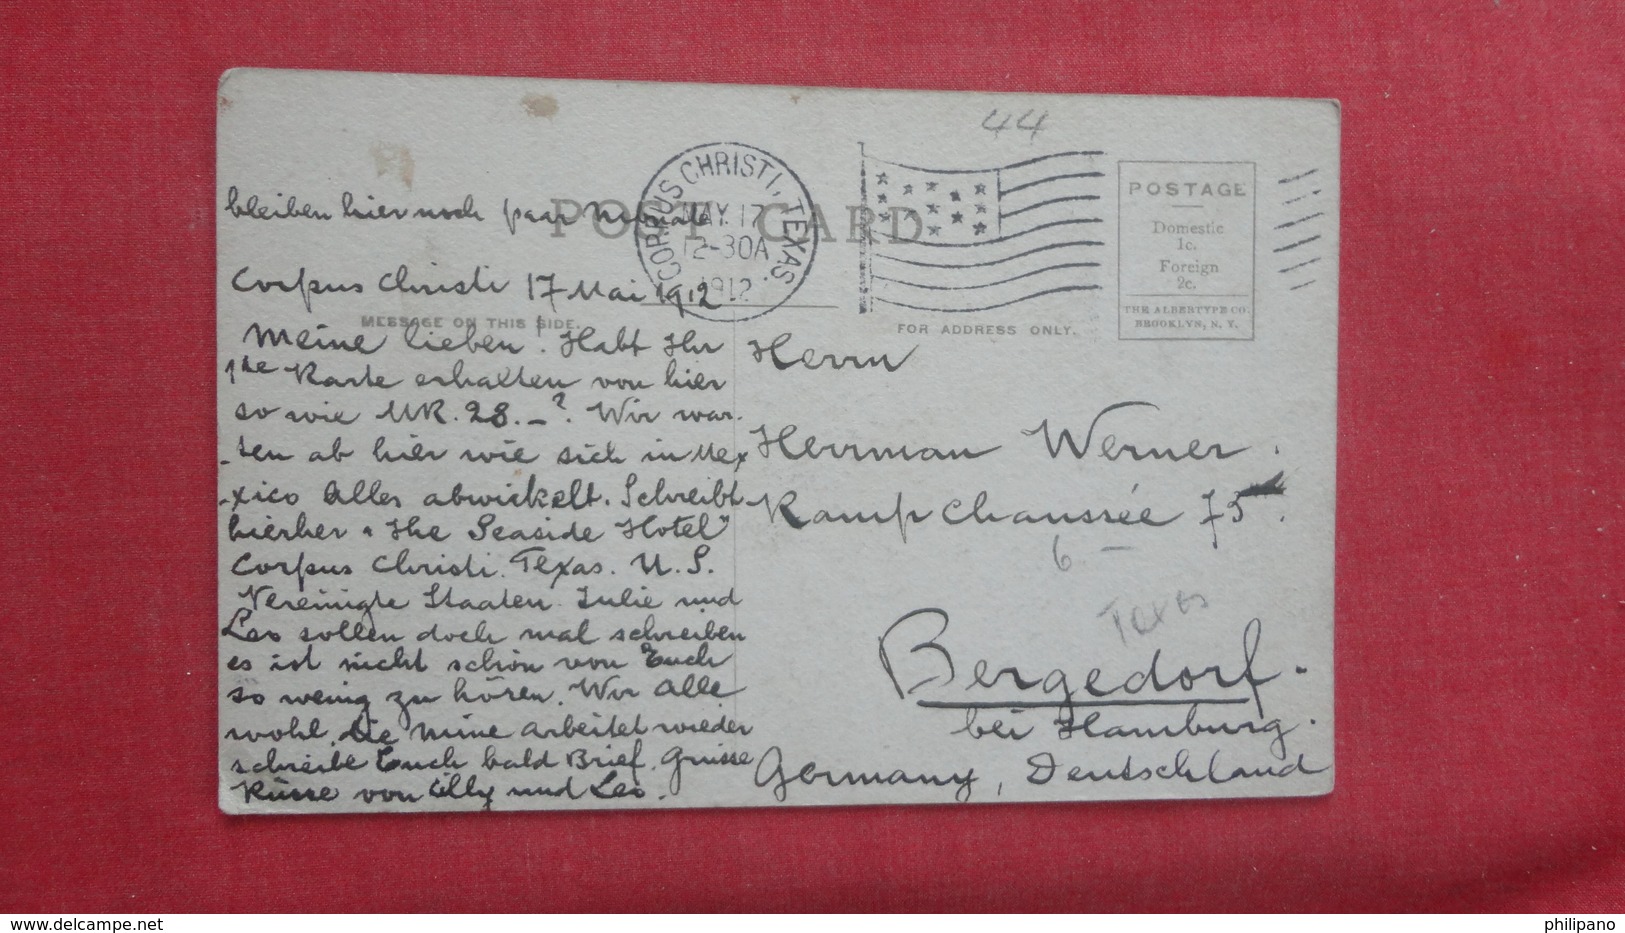 44
bleiben hier noch paar Monate
POST CARD
CORPUS CHRISTI, TEXAS.
MAY 17
12-30A
1912
POSTAGE
Domestic
1c.
Foreign
2c.
THE ALBERTYPE CO.
BROOKLYN, N. Y.
Corpus Christi 17 Mai 1912
MESSAGE ON THIS SIDE.
FOR ADDRESS ONLY.
Meine lieben! Habt Ihr
1te Karte erhalten von hier
so wie MK. 28.–? Wir war-
-ten ab hier wie sich in Mex
-xico Alles abwickelt. Schreibt
hierher "The Seaside Hotel"
Corpus Christi. Texas. U. S.
Vereinigte Staaten. Julie und
Leo sollen doch mal schreiben
es ist nicht schön von Euch
so wenig zu hören. Wir alle
wohl. die Mine arbeitet wieder
schreibe Euch bald Brief. Grüsse
Küsse von Lilly und Leo.
Herrn
Herrman Werner.
Kamp Chaussée 75.
6 –
Texas
Bergedorf.
bei Hamburg.
Germany, Deutschland
philipano